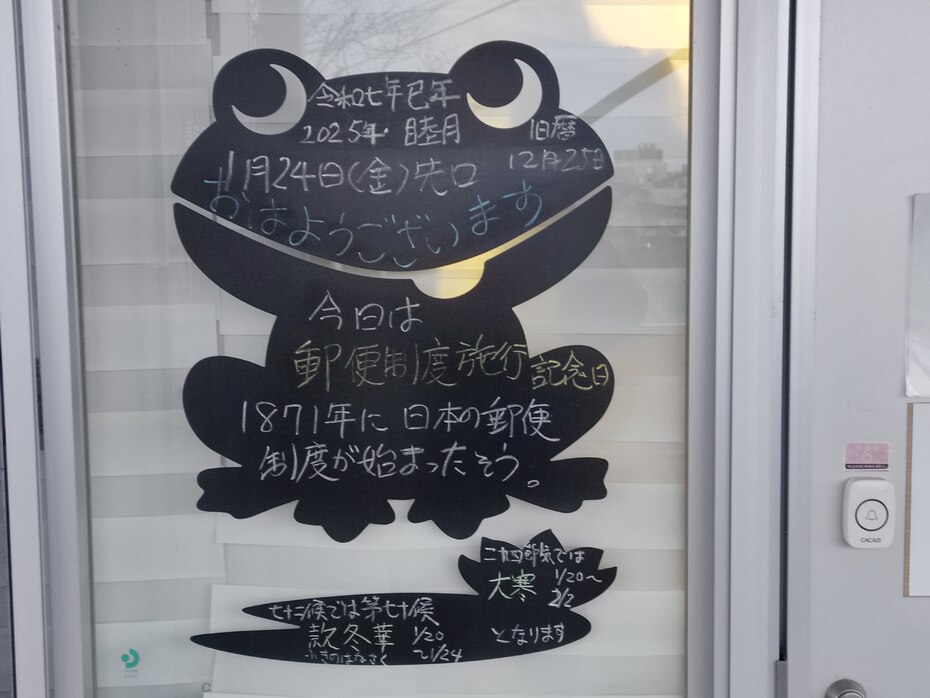 令和七年巳年
2025年 睦月
旧暦
12月25日
1月24日(金)先口
おはようございます
今日は
郵便制度施行記念日
1871年に日本の郵便
制度が始まったそう。
二十四節気では
大寒 1/20〜
2/2
七十二候では第七十候
款冬華 1/20
ふきのはなさく 〜1/24
となります
PLEASE RING BELL
CACAZI